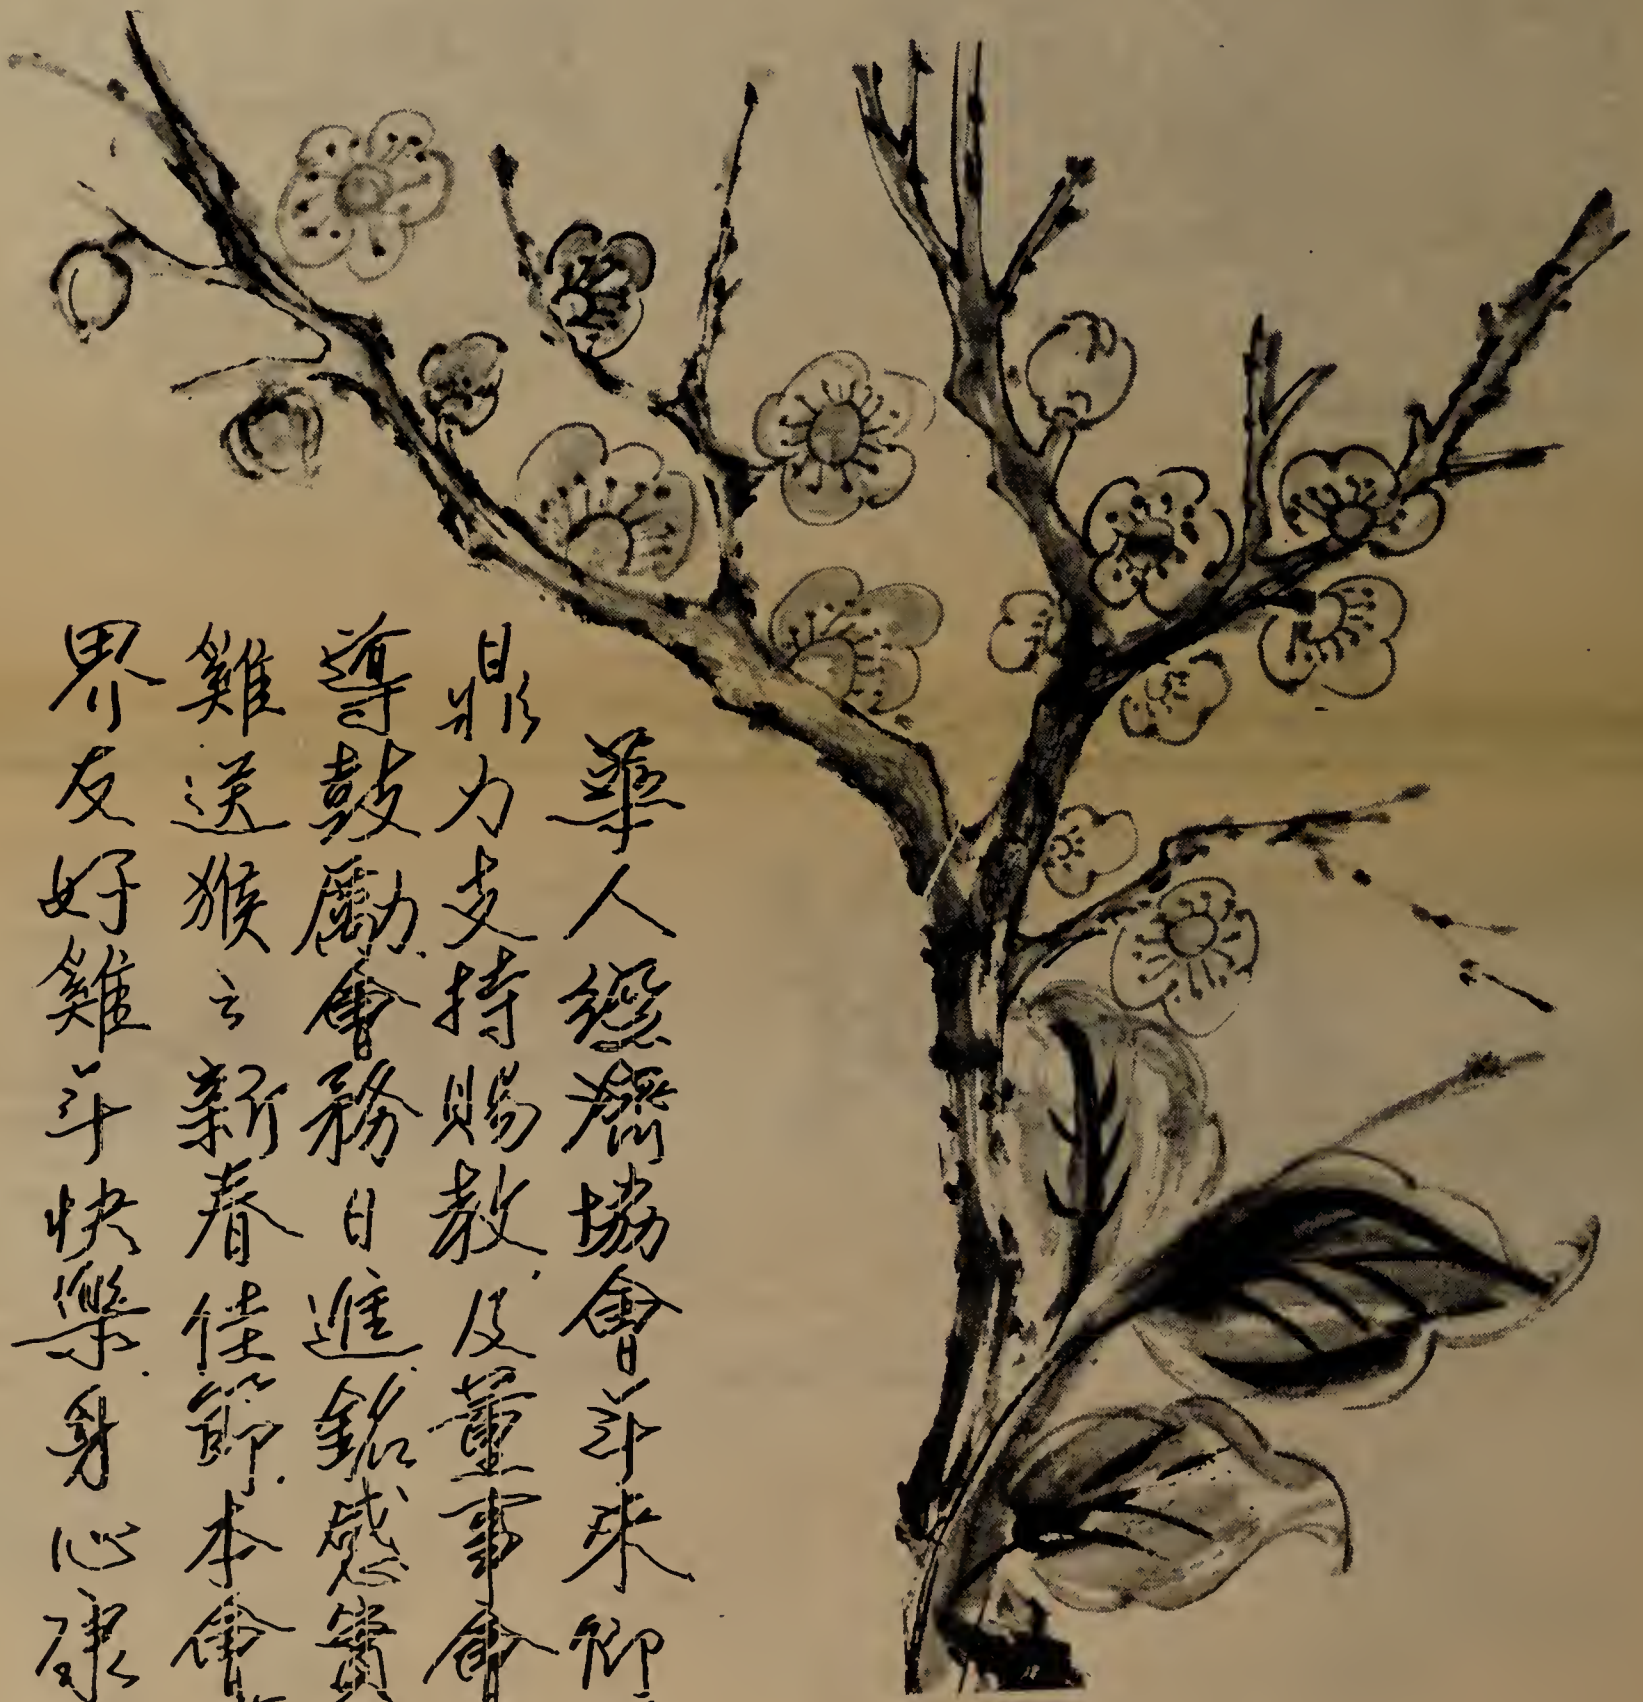 華人經濟協會年來仰
鼎力支持賜教.及董事會
導鼓勵.會務日進.銘感實
雞送猴之新春佳節.本會
界友好雞年快樂.身心康